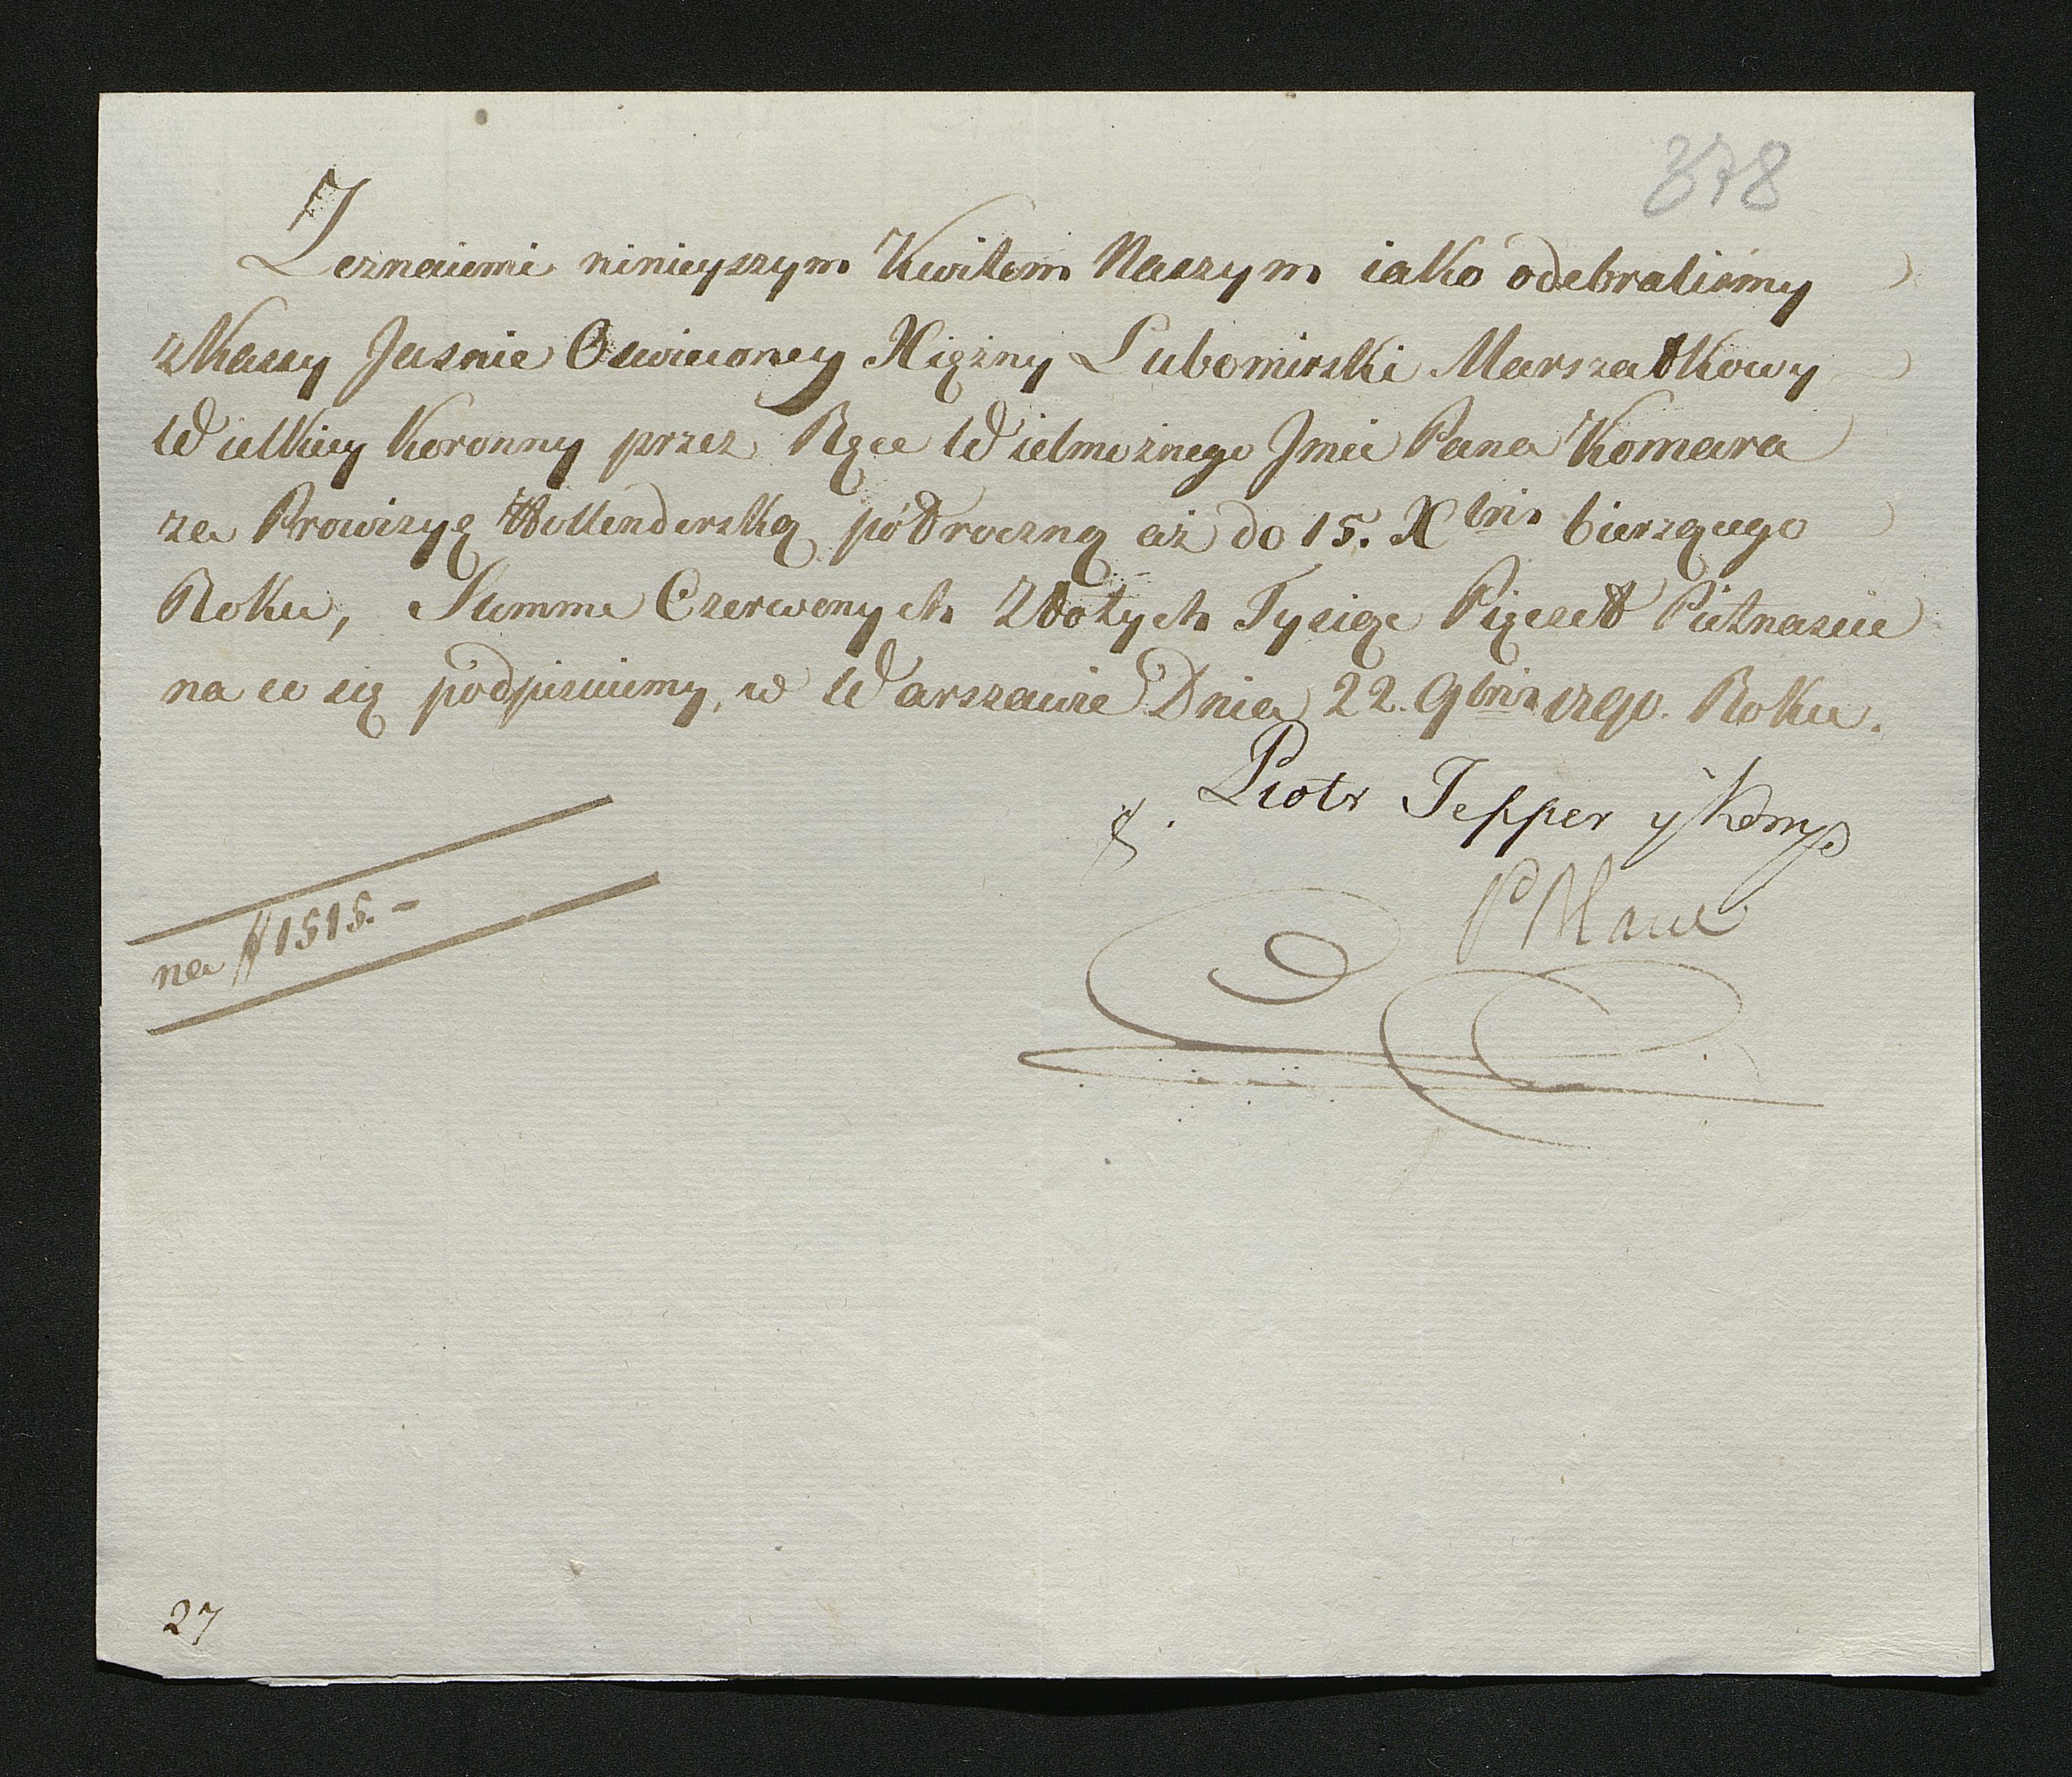 378
Zeznaiemi ninieyszym Kwitem Naszym iako odebraliśmy
z Kassy Jasnie Oswieconey Xiężny Lubomirski Marszałkowy
Wielkiey Koronny przez Ręce Wielmożnego Jmci Pana Komara
za Prowizyą Hollenderską półroczną aż do 15. Xbris bierzącego
Roku, Summa Czerwonych Złotych Tysiąc Pięcset Pietnascie
na co się podpisuiemy, w Warszawie Dnia 22. 9bris 1790. Roku.
Piotr Tepper y Komp
na # 1515.-
27